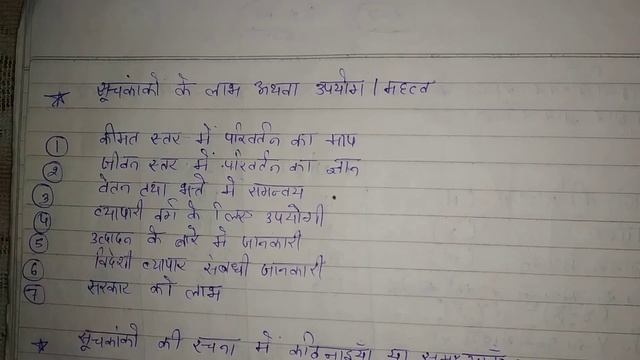 * सूचकांको के लाभ अथवा उपयोग / महत्व
① कीमत स्तर में परिवर्तन का माप
② जीवन स्तर में परिवर्तन का ज्ञान
③ वेतन तथा भत्ते में समन्वय
④ व्यापारी वर्ग के लिए उपयोगी
⑤ उत्पादन के बारे में जानकारी
⑥ विदेशी व्यापार संबधी जानकारी
⑦ सरकार को लाभ
* सूचकांको की रचना में कठिनाइयाँ या